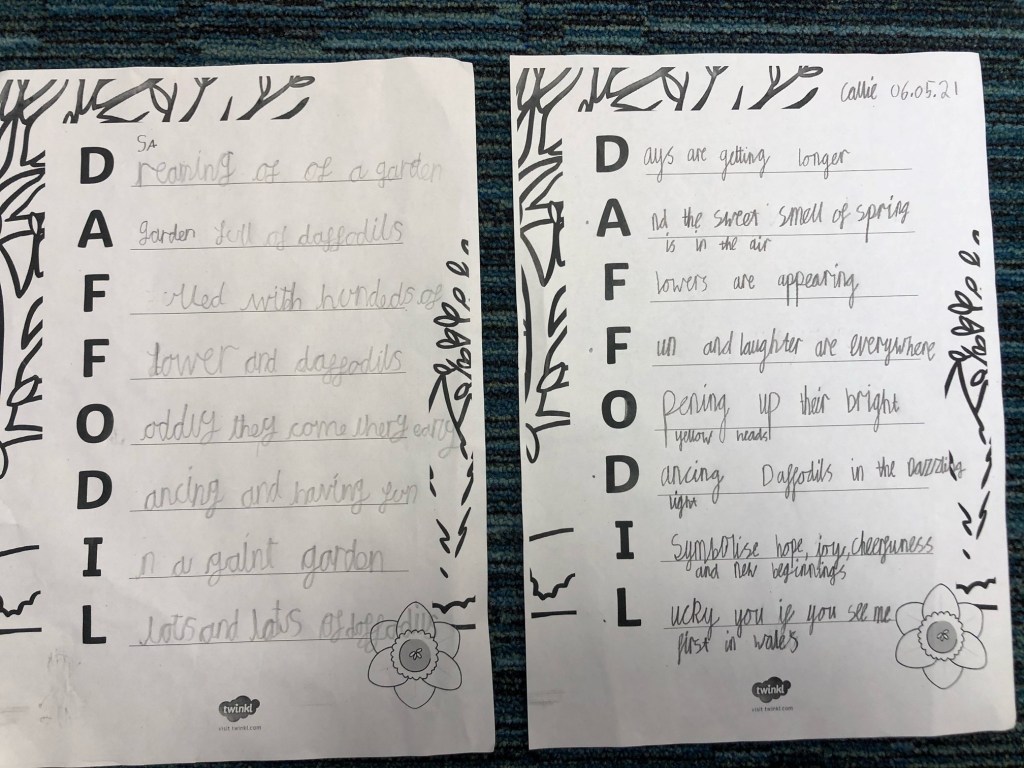 SA
Dreaming of of a garden
A garden full of daffodils
F illed with hundeds of
F lower and daffodils
O oddly they come they early
D ancing and having fun
I n a gaint garden
L lots and lots of daffodils
twinkl
visit twinkl.com
Callie 06.05.21
Days are getting longer
And the sweet smell of spring
is in the air
Flowers are appearing
Fun and laughter are everywhere
Opening up their bright
yellow heads
Dancing Daffodils in the Dazzling
light
I Symbolise hope, joy, cheerfuness
and new beginnings
Lucky you if you see me
first in wales
twinkl
visit twinkl.com